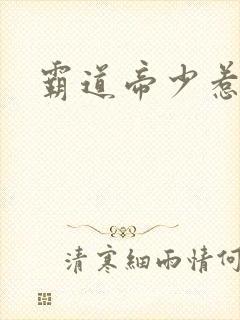 霸道帝少惹
清寒細雨情何